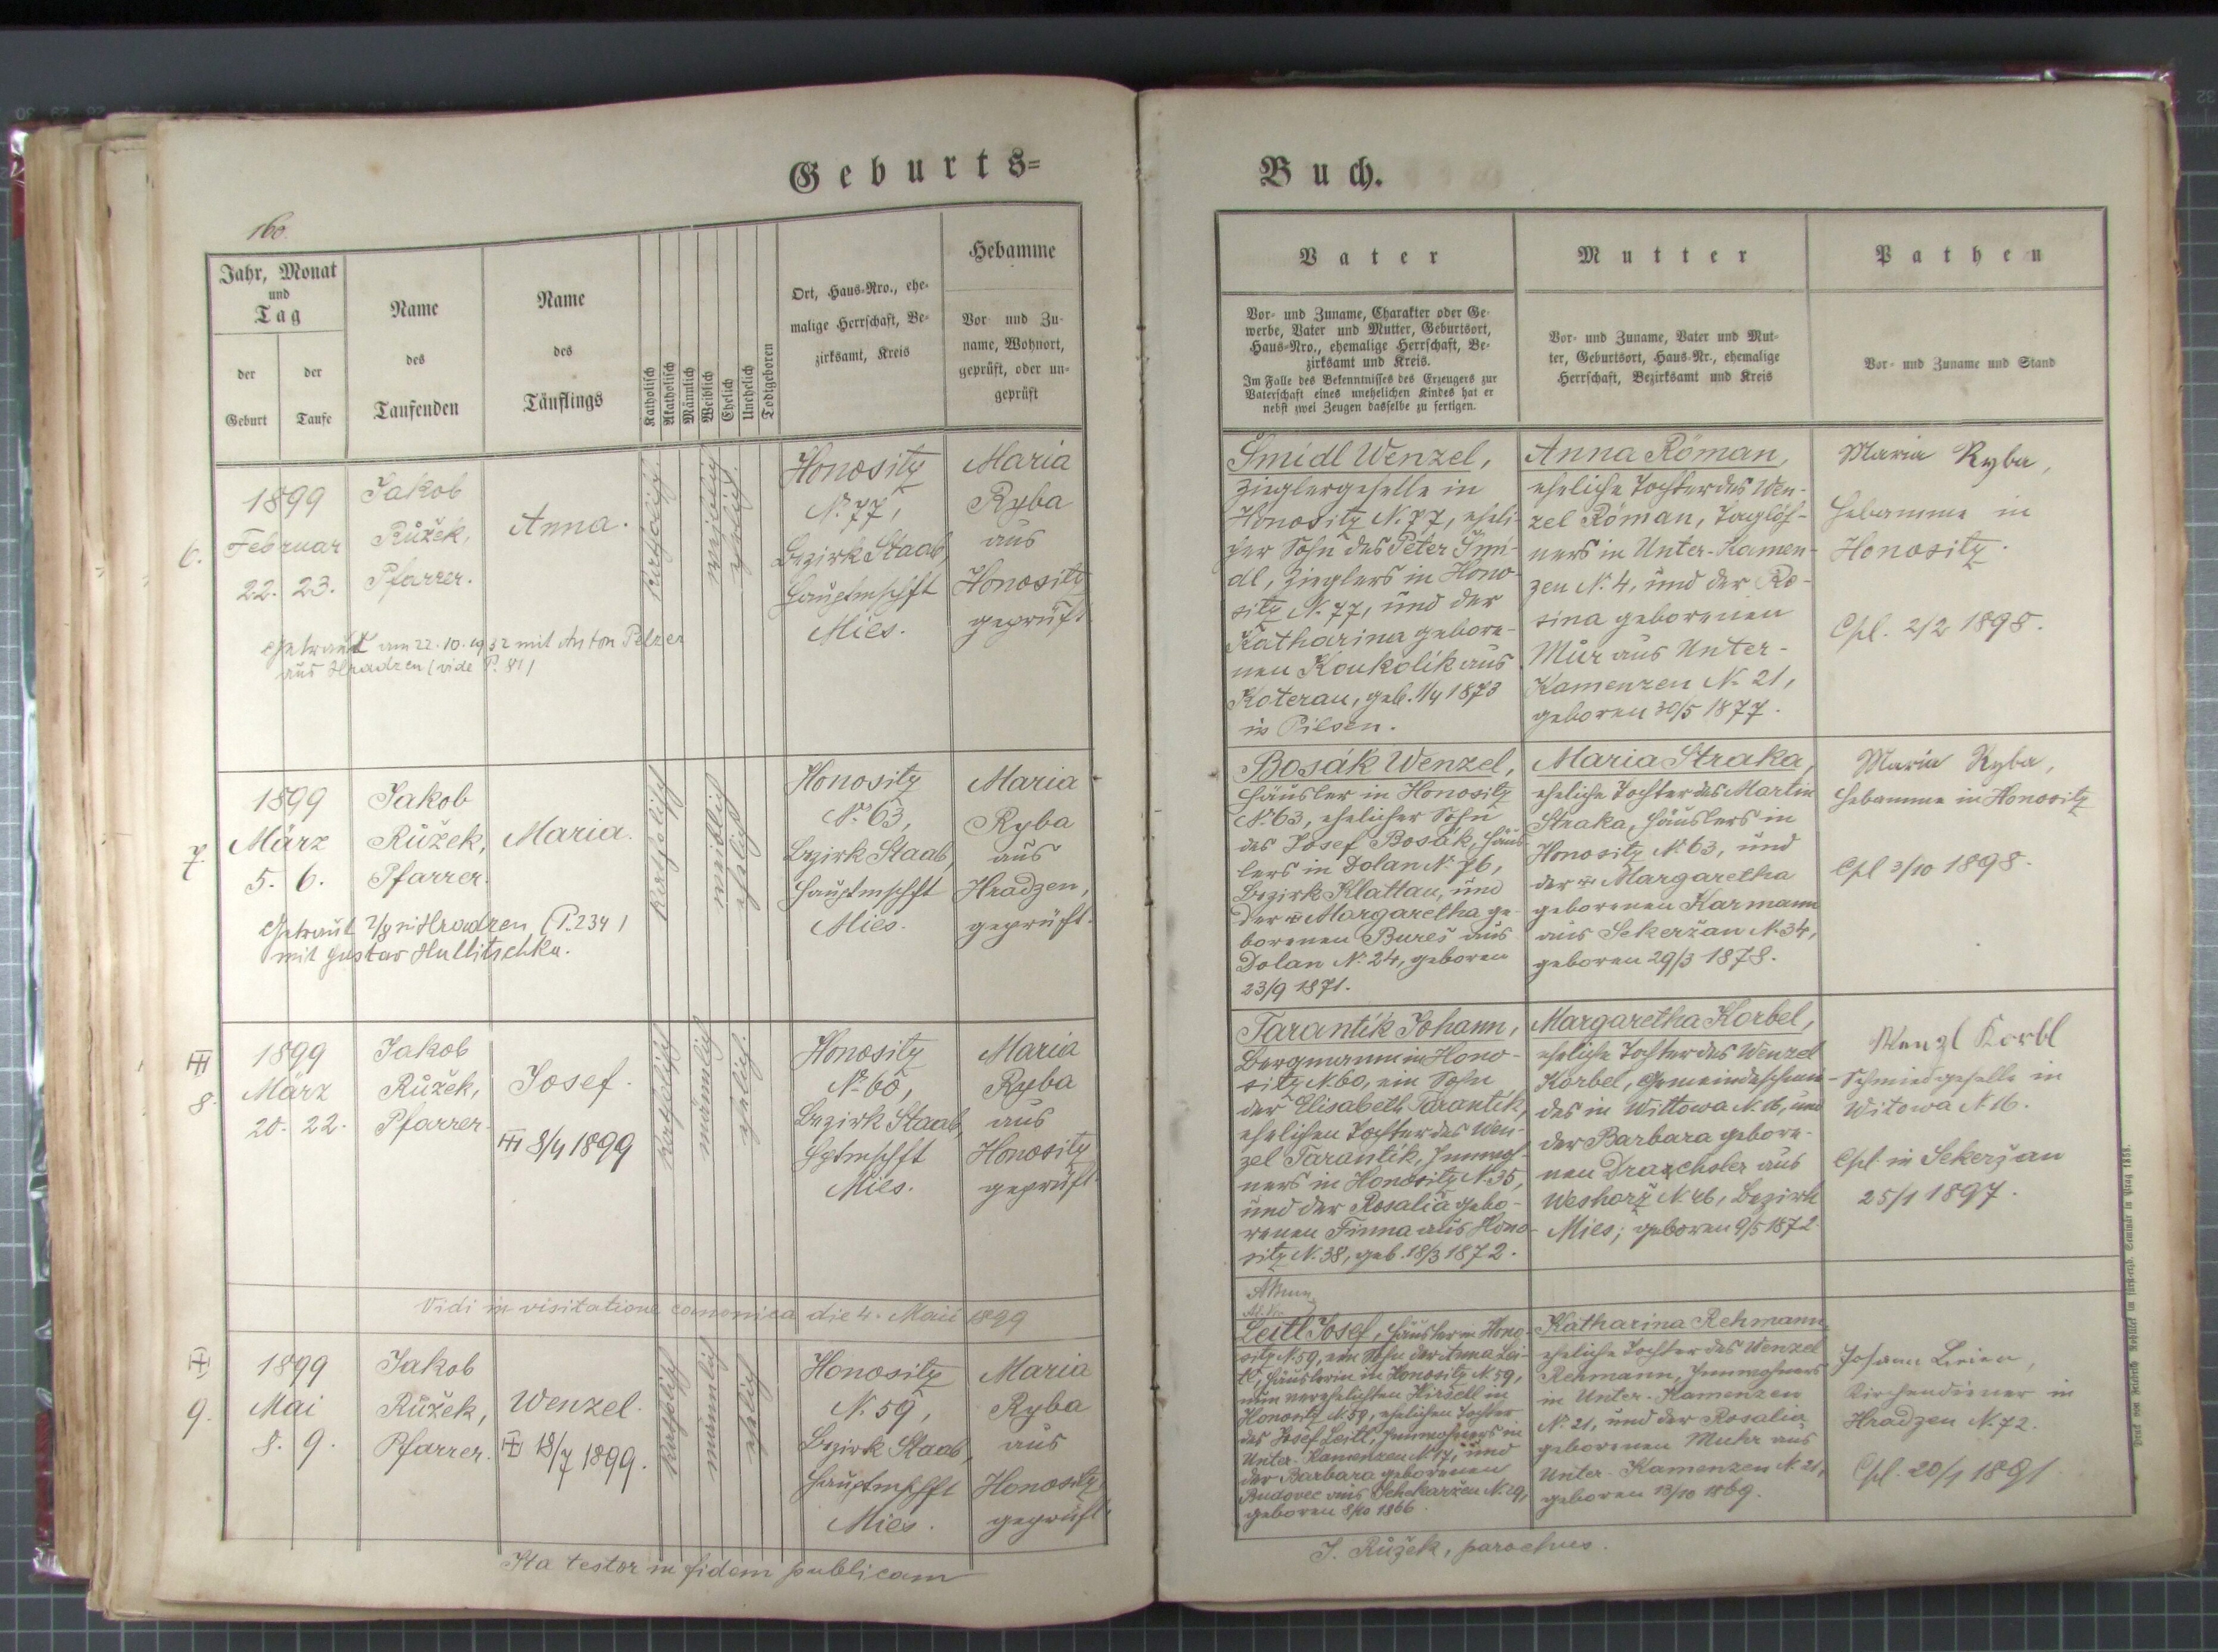 Geburts-
Buch.
160.
Jahr, Monat
und
Tag
der
Geburt
der
Taufe
Name
des
Taufenden
Name
des
Täuflings
Katholisch
Akatholisch
Männlich
Weiblich
Ehelich
Unehelich
Todtgeboren
Ort, Haus-Nro., ehe-
malige Herrschaft, Be-
zirksamt, Kreis
Hebamme
Vor- und Zu-
name, Wohnort,
geprüft, oder un-
geprüft
Vater
Vor- und Zuname, Charakter oder Ge-
werbe, Vater und Mutter, Geburtsort,
Haus-Nro., ehemalige Herrschaft, Be-
zirksamt und Kreis.
Im Falle des Bekenntnisses des Erzeugers zur
Vaterschaft eines unehelichen Kindes hat er
nebst zwei Zeugen dasselbe zu fertigen.
Mutter
Vor- und Zuname, Vater und Mut-
ter, Geburtsort, Haus-Nr., ehemalige
Herrschaft, Bezirksamt und Kreis
Pathen
Vor- und Zuname und Stand
6.
1899
Februar
22. 23.
Jakob
Růžek,
Pfarrer.
Anna.
katholisch
weiblich
ehelich.
Honositz
N. 77,
Bezirk Staab,
Hauptmschft
Mies.
Maria
Ryba
aus
Honositz
geprüft.
Getraut am 22.10.1932 mit Anton Pelzer
aus Hradzen (vide P. 81)
Šmidl Wenzel,
Zieglergeselle in
Honositz N. 77, eheli-
cher Sohn des Peter Šmi-
dl, Zieglers in Hono-
sitz N. 77, und der
Katharina gebore-
nen Koukolik aus
Koterau, geb. 1/4 1873
in Pilsen.
Anna Röman,
eheliche Tochter des Wen-
zel Röman, Taglöh-
ners in Unter-Kamen-
zen N. 4, und der Ro-
sina geborenen
Mur aus Unter-
Kamenzen N. 21,
geboren 30/5 1877.
Maria Ryba,
Hebamme in
Honositz.
Cpl. 2/2 1898.
7.
1899
März
5. 6.
Jakob
Růžek,
Pfarrer.
Maria.
katholisch
weiblich
ehelich
Honositz
N. 63,
Bezirk Staab,
Hauptmschft
Mies.
Maria
Ryba
aus
Hradzen,
geprüft.
Getraut in Hradzen (P. 234)
mit Gustav Hullitschka.
Bosák Wenzel,
Häusler in Honositz
N. 63, ehelicher Sohn
des Josef Bosák, Häus-
lers in Dolan N. 76,
Bezirk Klattau, und
der Margaretha ge-
borenen Bureš aus
Dolan N. 24, geboren
23/9 1871.
Maria Straka,
eheliche Tochter des Martin
Straka, Häuslers in
Honositz N. 63, und
der Margaretha
geborenen Karmann
aus Sekeržan N. 34,
geboren 29/3 1878.
Maria Ryba,
Hebamme in Honositz
Cpl 3/10 1898.
8.
1899
März
20. 22.
Jakob
Růžek,
Pfarrer.
Josef.
8/4 1899
katholisch
männlich
ehelich.
Honositz
N. 60,
Bezirk Staab,
Hptmschft
Mies.
Maria
Ryba
aus
Honositz
geprüft.
Tarantik Johann,
Bergmann in Hono-
sitz N. 60, ein Sohn
der Elisabeth Tarantik,
ehelichen Tochter des Wen-
zel Tarantik, Inwoh-
ners in Honositz N. 35,
und der Rosalia gebo-
renen Finna aus Hono-
sitz N. 38, geb. 18/3 1872.
Margaretha Korbel,
eheliche Tochter des Wenzel
Korbel, Gemeindeschmi-
des in Wittowa N. 16, und
der Barbara gebore-
nen Drachsler aus
Weshorž N. 26, Bezirk
Mies; geboren 9/5 1872
Wenzl Korbl
Schmiedgeselle in
Witowa N. 16.
Cpl. in Sekeržan
25/1 1897.
Vidi in visitatione canonica die 4. Maii 1899
9.
1899
Mai
8. 9.
Jakob
Růžek,
Pfarrer.
Wenzel.
18/7 1899.
katholisch
männlich
ehelich
Honositz
N. 59,
Bezirk Staab,
Hauptmschft
Mies.
Maria
Ryba
aus
Honositz
geprüft.
Leitl Josef, Häusler in Hono-
sitz N. 59, ein Sohn der Anna Lei-
tl, Häuslerin in Honositz N. 59,
nun verehelichten Hirsell in
Honositz N. 59, ehelichen Tochter
des Josef Leitl, Inwohners in
Unter-Kamenzen N. 17, und
der Barbara geborenen
Budovec aus Tschekarzen N. 29,
geboren 8/10 1866.
Katharina Rehmann,
eheliche Tochter des Wenzel
Rehmann, Inwohners
in Unter-Kamenzen
N. 21, und der Rosalia
geborenen Muhr aus
Unter-Kamenzen N. 21,
geboren 13/10 1869.
Johann
Kirchendiener in
Hradzen N. 72.
Cpl. 20/1 1891
Ita testor in fidem publicam
J. Růžek, parochus.